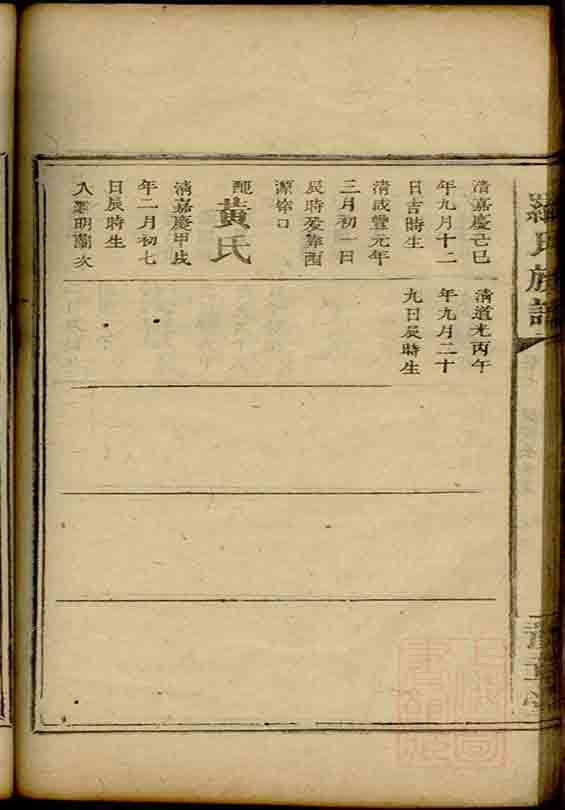 羅氏族譜
清嘉慶己巳
年九月十二
日吉時生
清咸豐元年
三月初一日
辰時歿葬酉
源
配
黃氏
清嘉慶甲戌
年二月初七
日辰時生
入 明蘭次
清道光丙午
年九月二十
九日辰時生